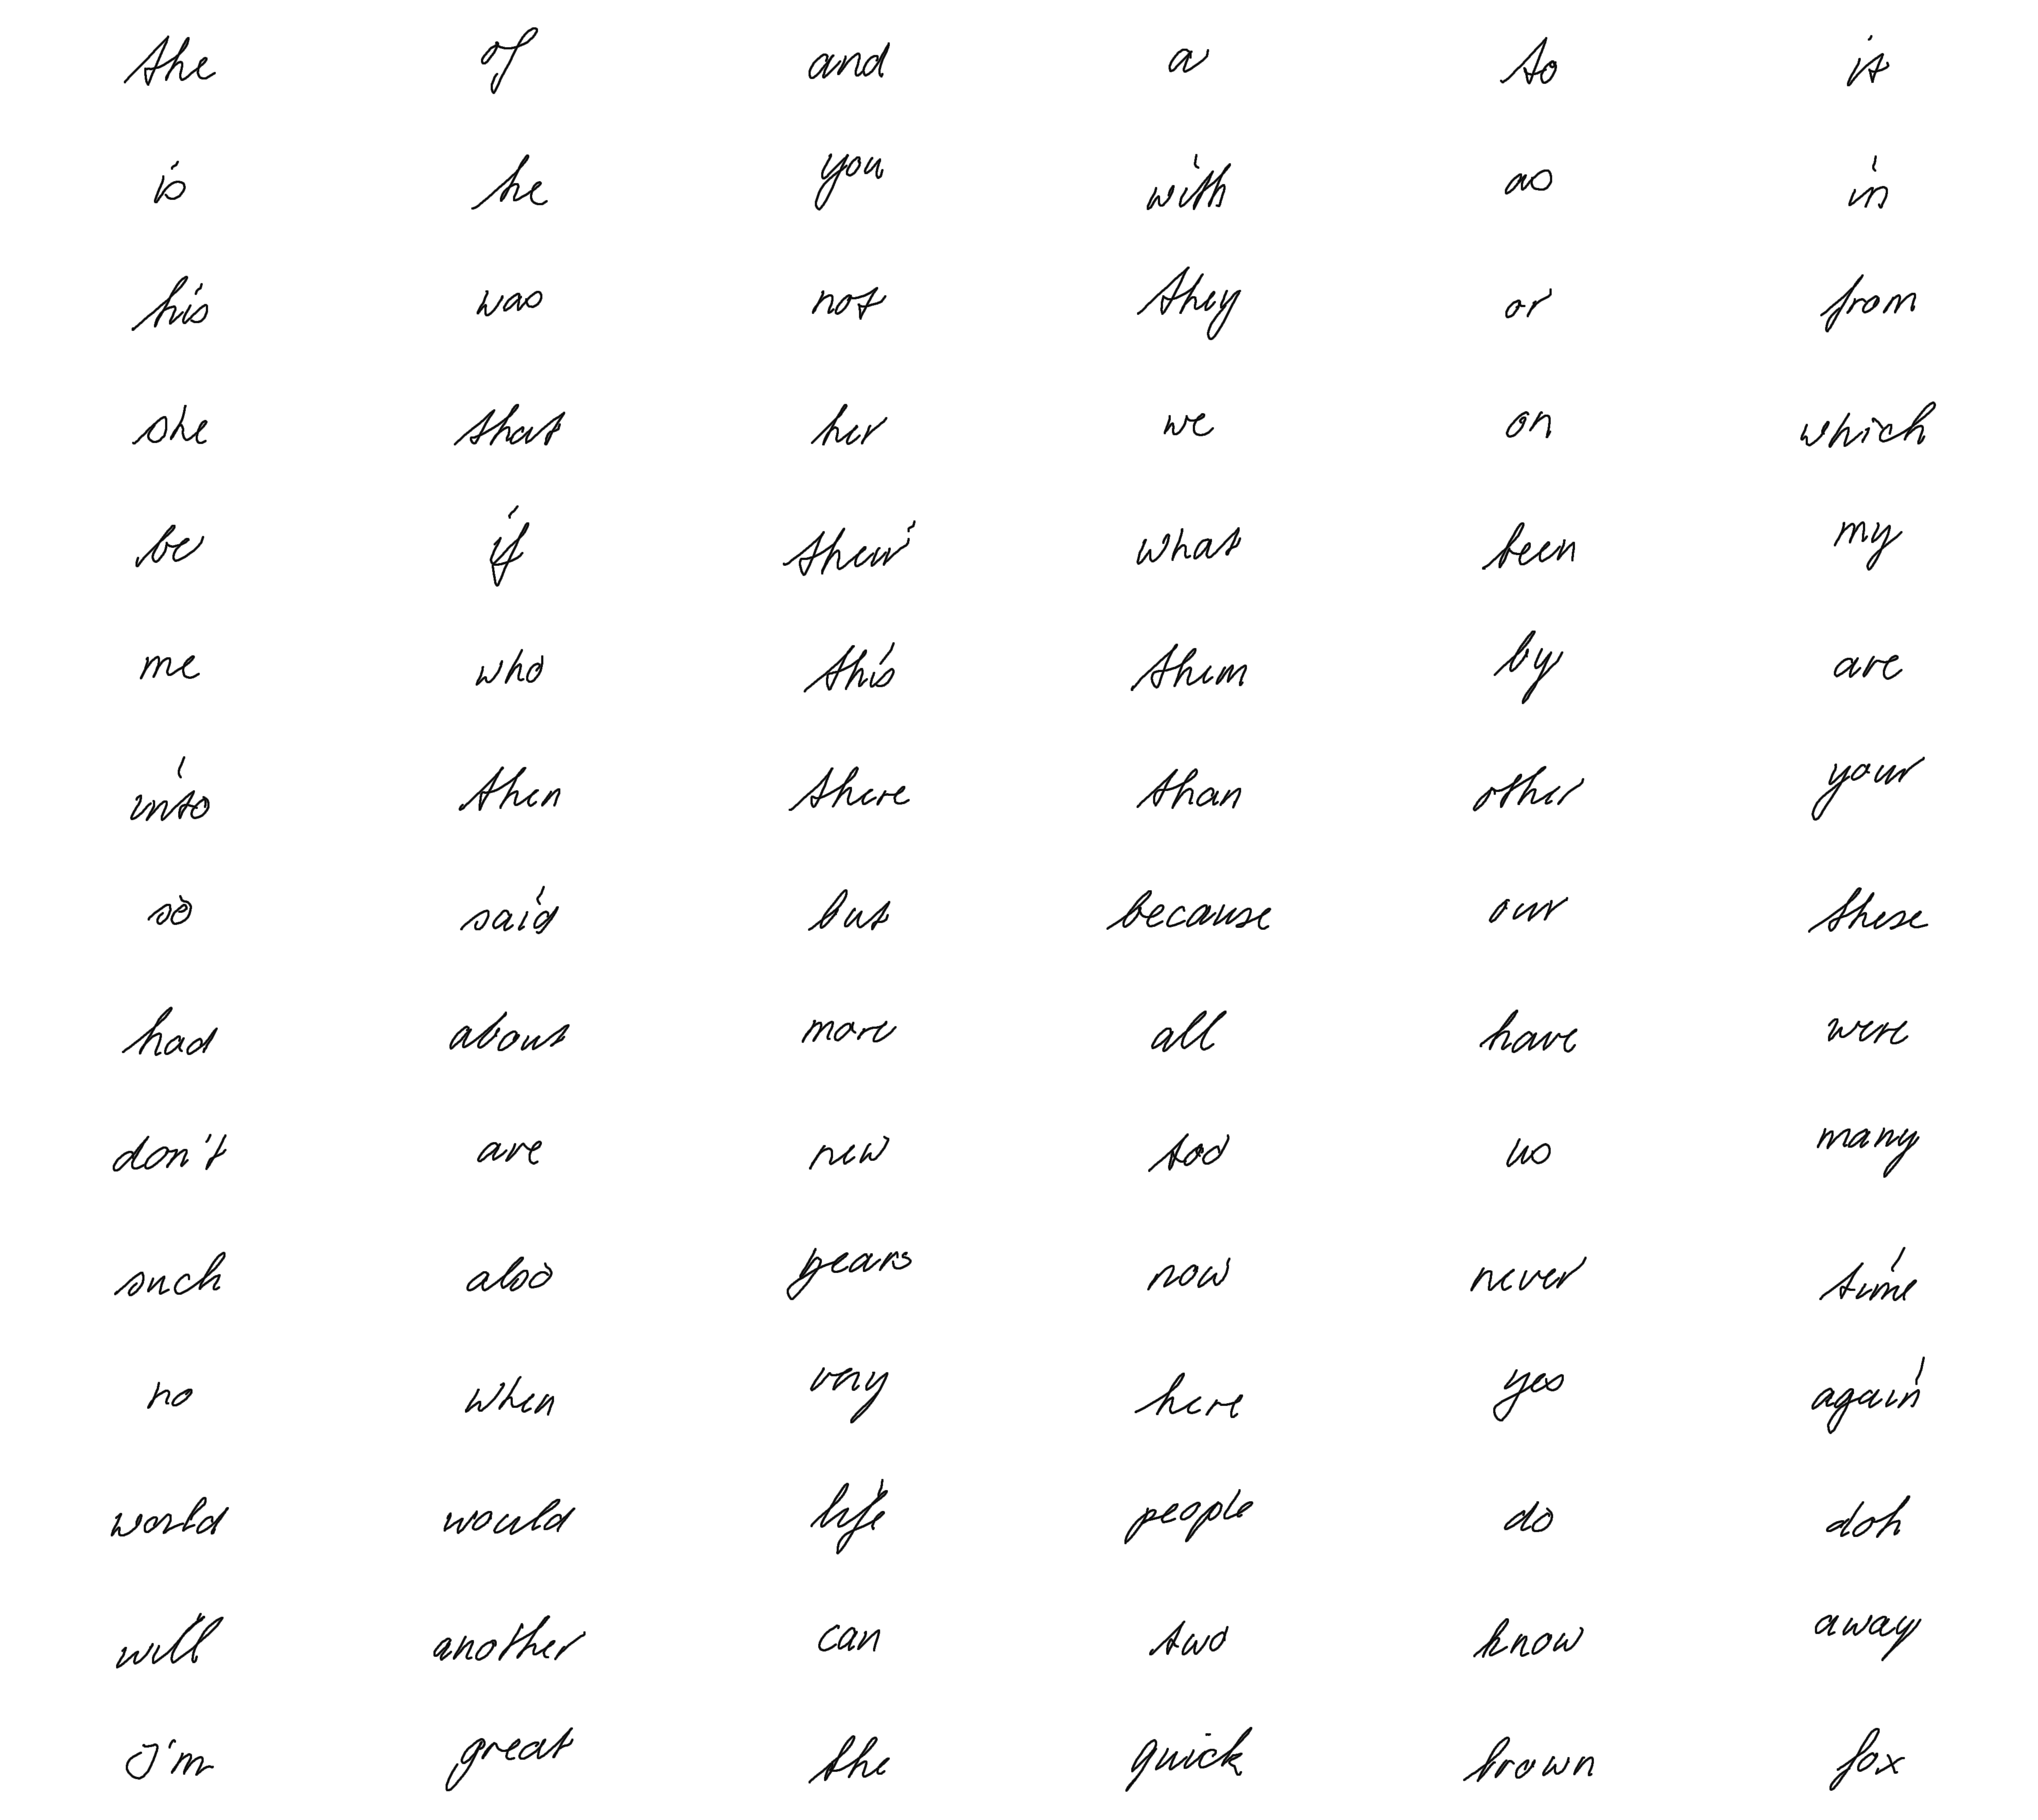 the of and a to it
is he you with as in
his was not they or from
she that her we on which
be if their what been my
me who this them by are
into then there than other your
so said but because our these
had about more all have were
don't are new too us many
such also years now never time
no when very here yes again
world would life people do doh
will another can two know away
I'm great the quick brown fox